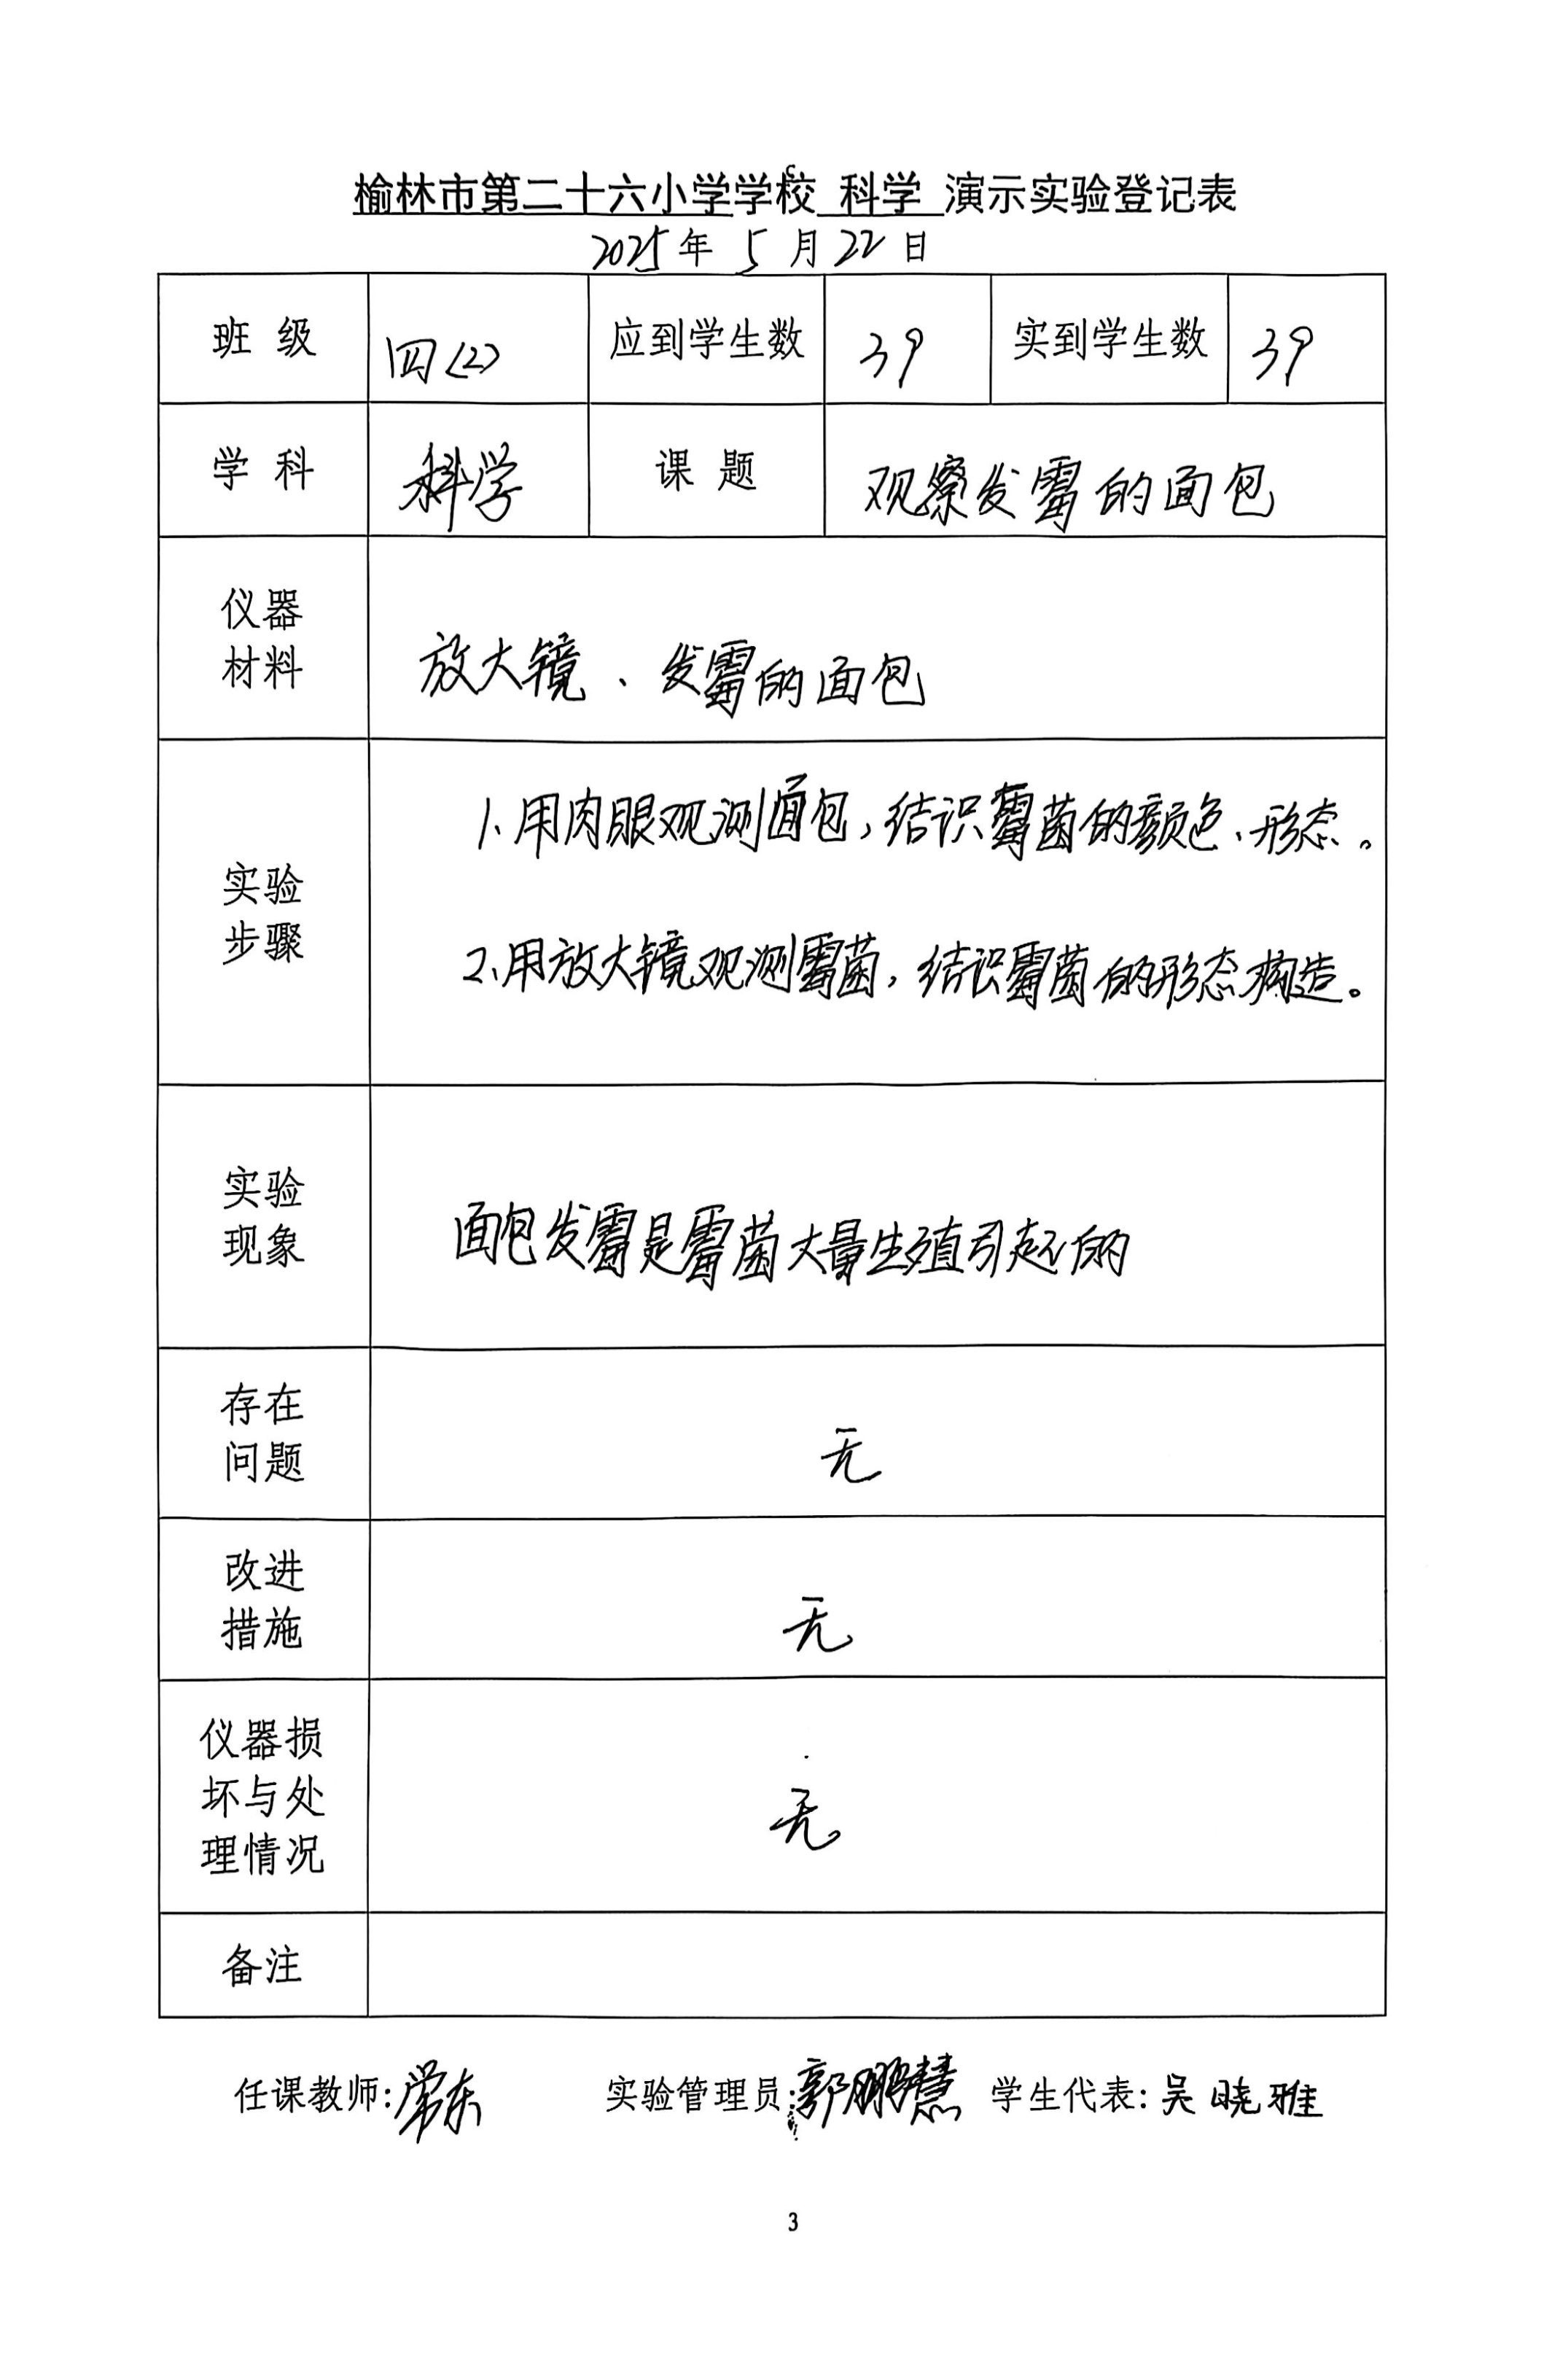 榆林市第二十六小学学校 科学 演示实验登记表
2025年 5月22日
班 级 四(2) 应到学生数 39 实到学生数 39
学 科 科学 课 题 观察发霉的面包
仪器
材料
放大镜、发霉的面包
实验
步骤
1、用肉眼观测面包,结识霉菌的颜色、形态。
2、用放大镜观测霉菌,结识霉菌的形态构造。
实验
现象
面包发霉是霉菌大量生殖引起的
存在
问题
无
改进
措施
无
仪器损
坏与处
理情况
无
备注
任课教师: 实验管理员:郭鹏慧 学生代表:吴晓雅
3